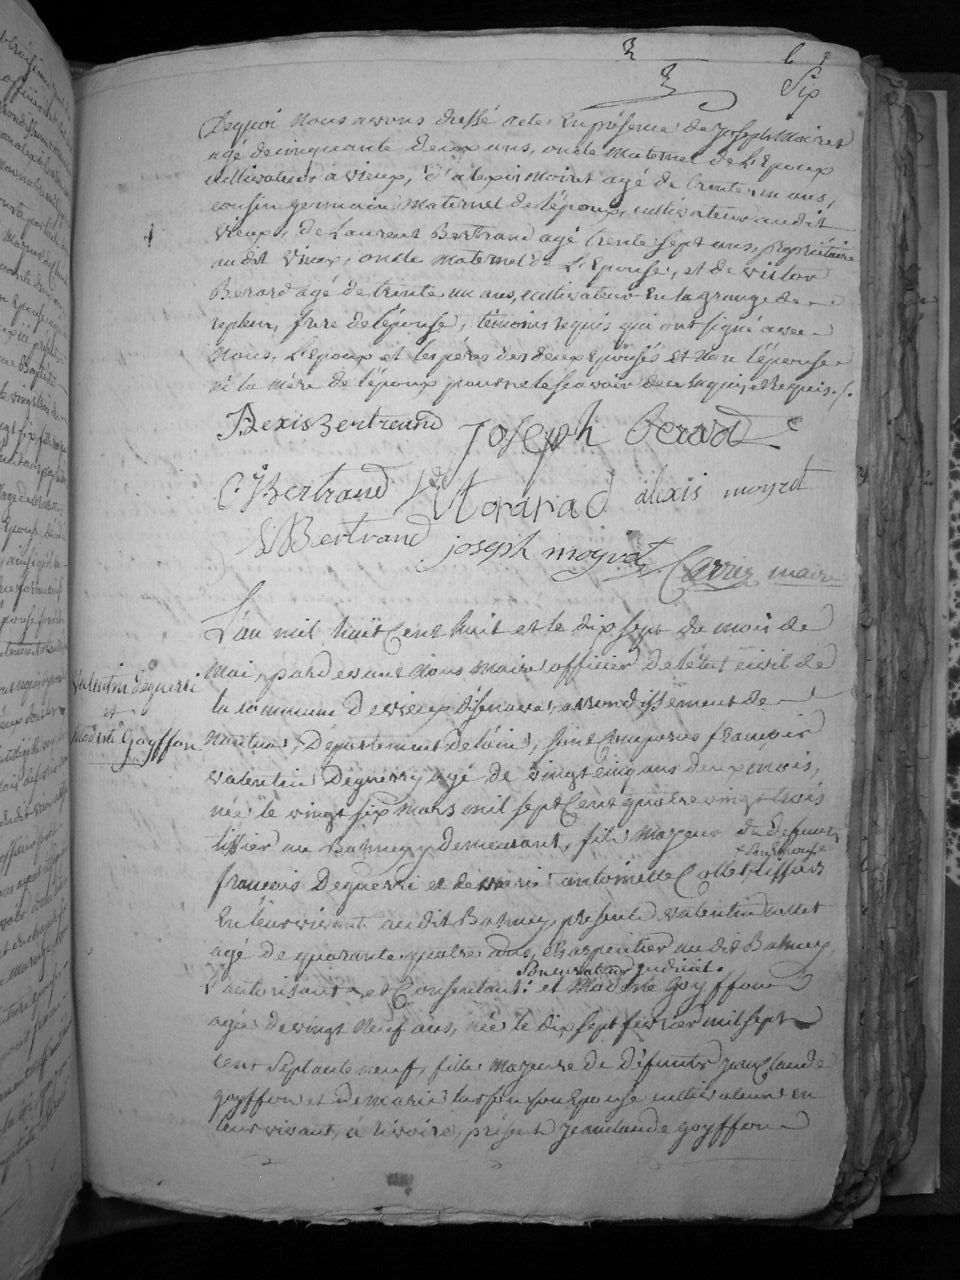 Six
Dequoi Nous avons dressé acte, En présence de Joseph Moiret
agé de cinquante deux ans, oncle Maternel de L'Epoux
cultivateur à vieux, d'alexis Moiret agé de trente un ans,
cousin germain Maternel de l'époux, cultivateur audit
vieux, de Laurent Bertrand agé trente sept ans, propriétaire
audit Vieux, oncle maternel de L'Epouse, et de victor
Berard agé de trente un ans, cultivateur En la grange de
frere de l'épouse, témoins requis qui ont signé avec
Nous, L'Epoux et les péres des deux Epousés et Non l'épouse
ni la mère de l'époux pour ne le scavoir de ce Enquis et Requis ./.
Alexis Bertrand Joseph Berard
C. Bertrand alexis moyret
L Bertrand joseph moyret Carrier maire
Valentin Deguerri
et
Modeste Goyffon
L'an mil huit Cent huit et le dix sept du mois de
Mai, pardevant Nous Maire officier de l'état civil de
la commune de vieux disenave, arrondissement de
Nantua, Département de l'ain, sont Comparus françois
valentin Deguerry agé de vingt cinq ans deux mois,
née le vingt six mars mil sept Cent quatre vingt trois
tissier au Demeurant, fils majeur de defunts
son Epouse
françois Deguerri et de marie antoinette Collet tissiers
En leur vivant audit présent valentin Collet
agé de quarante quatre ans, charpentier audit
Son curateur judiciel.
l'autorisant et Consentant. et Modeste Goyffon
agée de vingt Neuf ans, née le dix sept fevrier mil sept
cent Septante neuf, fille majeure de Défunts jean Claude
goyffon et de marie son Epouse cultivateurs en
leur vivant, a présent jean claude goyffon